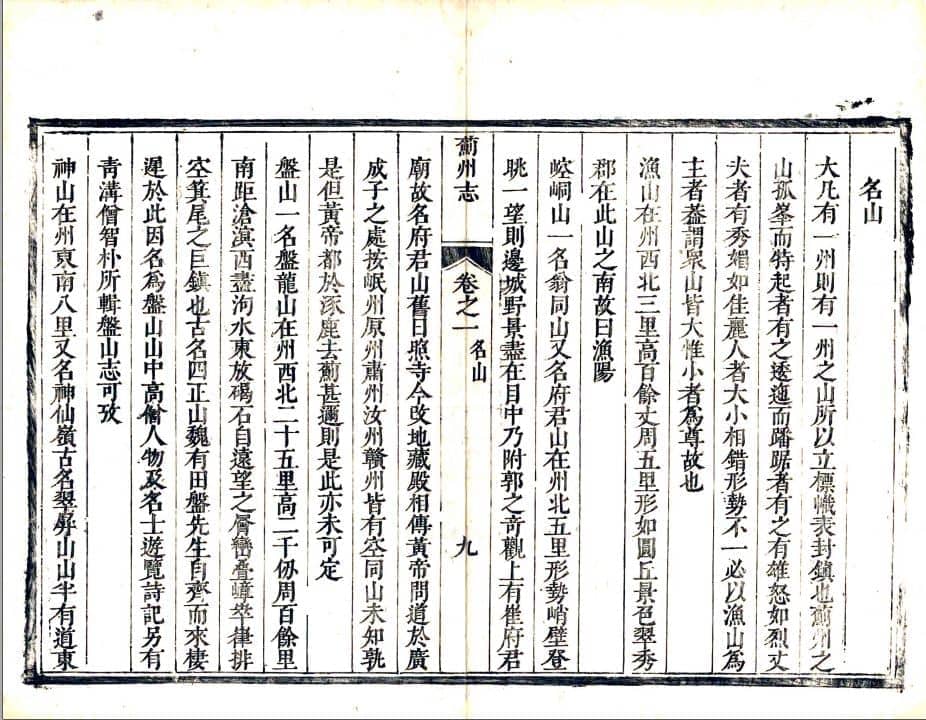 名山
大凡有一州則有一州之山所以立標幟表封鎮也薊州之
山孤峯而特起者有之逶迤而蹯踞者有之有雄怒如烈丈
夫者有秀媚如佳麗人者大小相錯形勢不一必以漁山爲
主者葢謂衆山皆大惟小者爲尊故也
漁山在州西北三里高百餘丈周五里形如圓丘景色翠秀
郡在此山之南故曰漁陽
崆峒山一名翁同山又名府君山在州北五里形勢峭壁登
眺一望則邊城野景盡在目中乃附郭之竒觀上有崔府君
薊州志
卷之一
名山
九
廟故名府君山舊日照寺今改地藏殿相傳黃帝問道於廣
成子之處按岷州原州肅州汝州贛州皆有空同山未知孰
是但黃帝都於涿鹿去薊甚邇則是此亦未可定
盤山一名盤龍山在州西北二十五里高二千仞周百餘里
南距滄溟西盡泃水東放碣石自遠望之層巒疊嶂崒嵂排
空箕尾之巨鎮也古名四正山魏有田盤先生自齊而來棲
遲於此因名爲盤山山中高僧人物及名士遊覽詩記另有
青溝僧智朴所輯盤山志可攷
神山在州東南八里又名神仙嶺古名翠屏山山半有道東